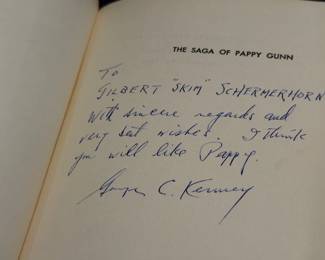 THE SAGA OF PAPPY GUNN
To
GILBERT "SKIM" SCHERMERHORN
With sincere regards and
very best wishes. I think
you will like Pappy.
George C. Kenney